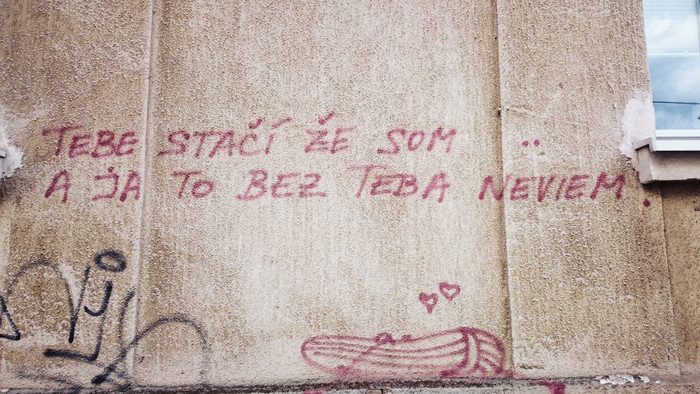 TEBE STAČÍ ŽE SOM ..
A JA TO BEZ TEBA NEVIEM.